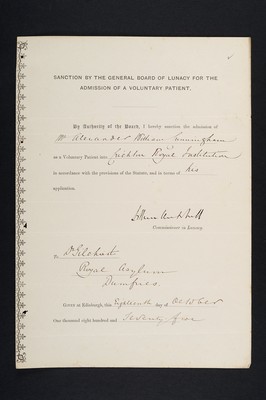 SANCTION BY THE GENERAL BOARD OF LUNACY FOR THE
ADMISSION OF A VOLUNTARY PATIENT.
By Authority of the Board, I hereby sanction the admission of
Mr Alexander William Cunningham
as a Voluntary Patient into Crichton Royal Institution
in accordance with the provisions of the Statute, and in terms of his
application.
Commissioner in Lunacy.
To
Dr Gilchrist
Royal Asylum
Dumfries.
GIVEN at Edinburgh, this Eighteenth day of October
One thousand eight hundred and Seventy four